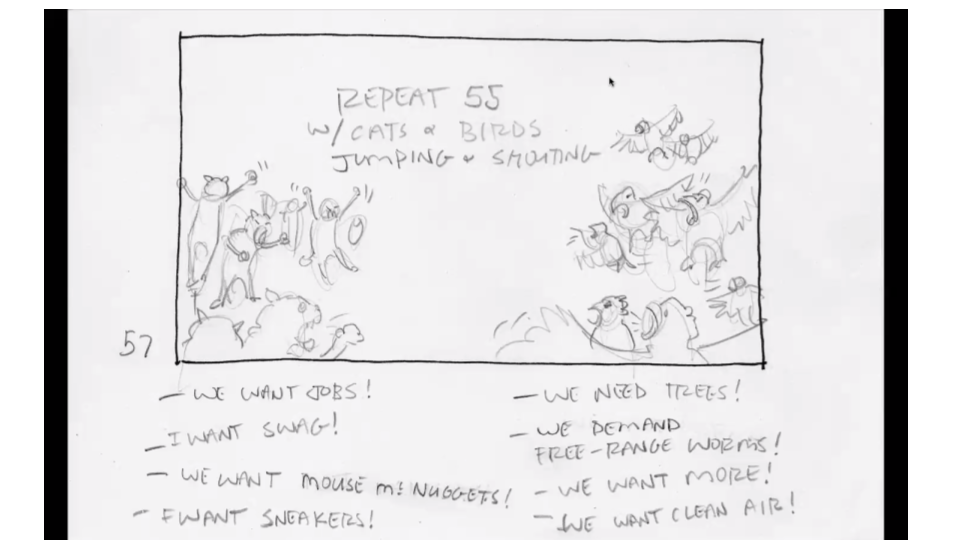 REPEAT 55
W/ CATS & BIRDS
JUMPING & SHOUTING
57
— WE WANT JOBS!
— I WANT SWAG!
— WE WANT MOUSE Mc NUGGETS!
— I WANT SNEAKERS!
— WE NEED TREES!
— WE DEMAND
FREE-RANGE WORMS!
— WE WANT MORE!
— WE WANT CLEAN AIR!